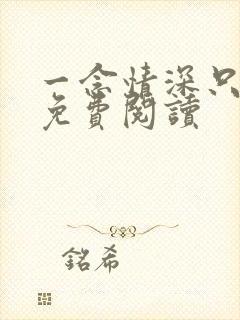 一念情深只
免費閱讀
銘希